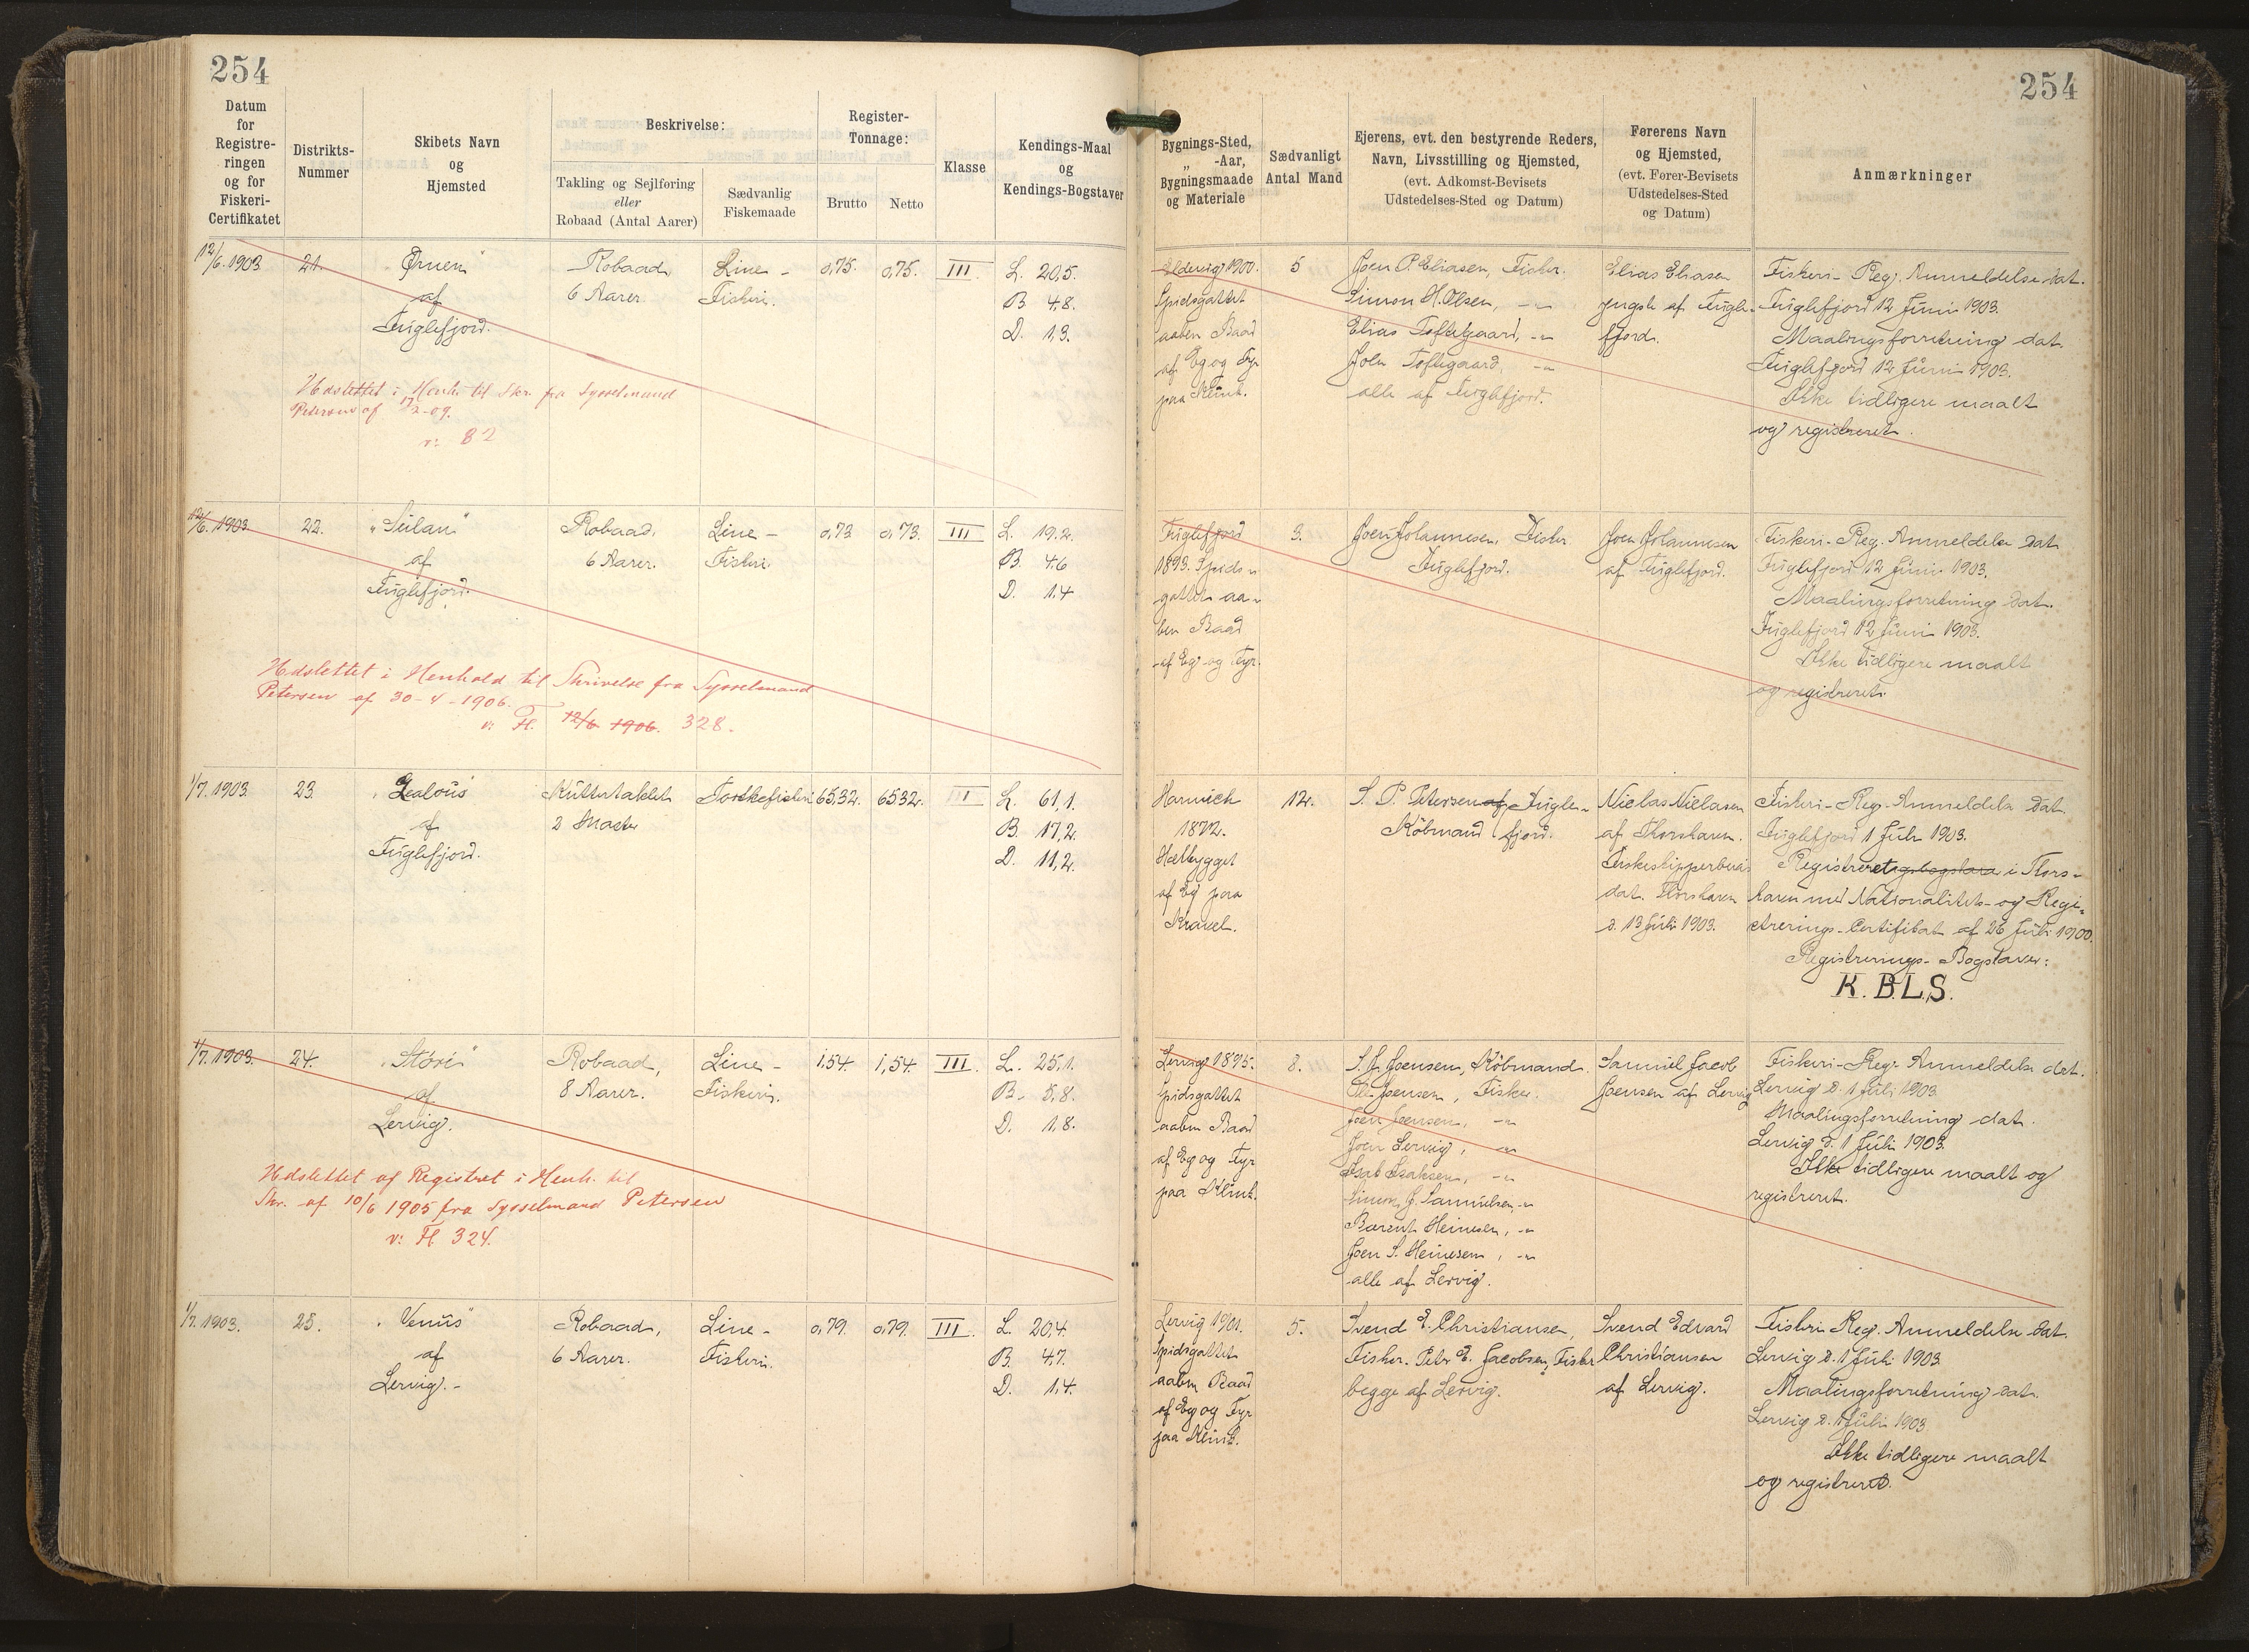 254
Datum
for
Registre-
ringen
og for
Fiskeri-
Certifikatet
Distrikts-
Nummer
Skibets Navn
og
Hjemsted
Beskrivelse:
Takling og Sejlføring
eller
Robaad (Antal Aarer)
Sædvanlig
Fiskemaade
Register-
Tonnage:
Brutto
Netto
Klasse
Kendings-Maal
og
Kendings-Bogstaver
12/6. 1903
21.
"Ørnen"
af
Fuglefjord.
Robaad,
6 Aarer.
Line-
Fiskeri.
0,75.
0,75.
III.
L. 20,5.
B 4,8.
D. 1,3.
Udslettet i Henh. til Skr. fra Sysselmand
Petersen af 17/2-09.
v: 82
12/6. 1903.
22.
"Suilan"
af
Fuglefjord.
Robaad.
6 Aarer.
Line-
Fiskeri.
0,73
0,73.
III
L. 19.2.
B. 4.6
D. 1,4
Udslettet i Henhold til Skrivelse fra Sysselmand
Petersen af 30-4-1906.
v: Fl. 12/6. 1906. 328.
1/7. 1903.
23.
"Zealous"
af
Fuglefjord.
Kuttertaklet
2 Master
Torskefiskeri
65.32.
65.32.
III
L. 61,1.
B. 17,2.
D. 11,2.
1/7. 1903.
24.
"Störi"
af
Lervig.
Robaad,
8 Aarer.
Line-
Fiskeri.
1,54.
1,54.
III.
L. 25,1.
B. 5,8.
D. 1,8.
Udslettet af Registret i Henh. til
Skr. af 10/6 1905 fra Sysselmand Petersen
v: Fl 324.
1/7. 1903.
25.
"Venus"
af
Lervig.-
Robaad,
6 Aarer.
Line-
Fiskeri.
0,79.
0,79.
III.
L. 20,4.
B. 4,7.
D. 1,4.
254
Bygnings-Sted,
„ -Aar,
Bygningsmaade
og Materiale
Sædvanligt
Antal Mand
Ejerens, evt. den bestyrende Reders,
Navn, Livsstilling og Hjemsted,
(evt. Adkomst-Bevisets
Udstedelses-Sted og Datum)
Førerens Navn
og Hjemsted,
(evt. Fører-Bevisets
Udstedelses-Sted
og Datum)
Anmærkninger
Eldevig 1900.
Spidsgattet
aaben Baad
af Eg og Fyr
paa Klink.
5
Joen P. Eliasen, Fisker.
Simon H. Olsen, -"-
Elias Toftegaard, -"-
Joen Toftegaard, -"-
alle af Fuglefjord.
Elias Eliasen
yngste af Fugle-
fjord.
Fiskeri-Reg. Anmeldelse dat.
Fuglefjord 12 Juni 1903.
Maalingsforretning dat.
Fuglefjord 12 Juni 1903.
Ikke tidligere maalt
og registreret.
Fuglefjord
1893. Spids-
gattet aa-
ben Baad
af Eg og Fyr.
3.
Joen Johannesen, Fisker
Fuglefjord.
Joen Johannesen
af Fuglefjord.
Fiskeri-Reg. Anmeldelse dat
Fuglefjord 12 Juni 1903.
Maalingsforretning dat.
Fuglefjord 12 Juni 1903.
Ikke tidligere maalt
og registreret.
Harwich
1872.
Hælbygget
af Eg paa
Kravel.
12.
S. P. Petersen af Fugle-
Köbmand fjord.
Niclas Niclasen
af Thorshavn.
Fiskeskipperbevis
dat. Thorshavn
d. 13 Juli 1903.
Fiskeri-Reg. Anmeldelse dat.
Fuglefjord 1 Juli 1903.
Registreret i Thors-
havn med Nationalitets- og Regi-
strerings-Certifikat af 26 Juli 1900.
Registrerings-Bogstaver:
K.B.L.S.
Lervig 1895.
Spidsgattet
aaben Baad
af Eg og Fyr
paa Klink.
8.
S. J. Joensen, Köbmand.
Joensen, Fisker.
Joen Joensen, -"-
Joen Lervig, -"-
Isak Isaksen, -"-
Simon J. Samuelsen, -"-
Barent Heinesen, -"-
Joen S. Heinesen, -"-
alle af Lervig.
Samuel Jacob
Joensen af Lervig
Fiskeri-Reg. Anmeldelse dat.
Lervig d. 1 Juli 1903.
Maalingsforretning dat.
Lervig d. 1 Juli 1903.
Ikke tidligere maalt og
registreret.
Lervig 1901.
Spidsgattet
aaben Baad
af Eg og Fyr
paa Klink.
5.
Svend E. Christiansen,
Fisker. Peter E. Jacobsen, Fisker
begge af Lervig.
Svend Edvard
Christiansen
af Lervig.
Fiskeri Reg. Anmeldelse dat.
Lervig d. 1 Juli 1903.
Maalingsforretning dat.
Lervig d. 1 Juli 1903
Ikke tidligere maalt
og registreret.